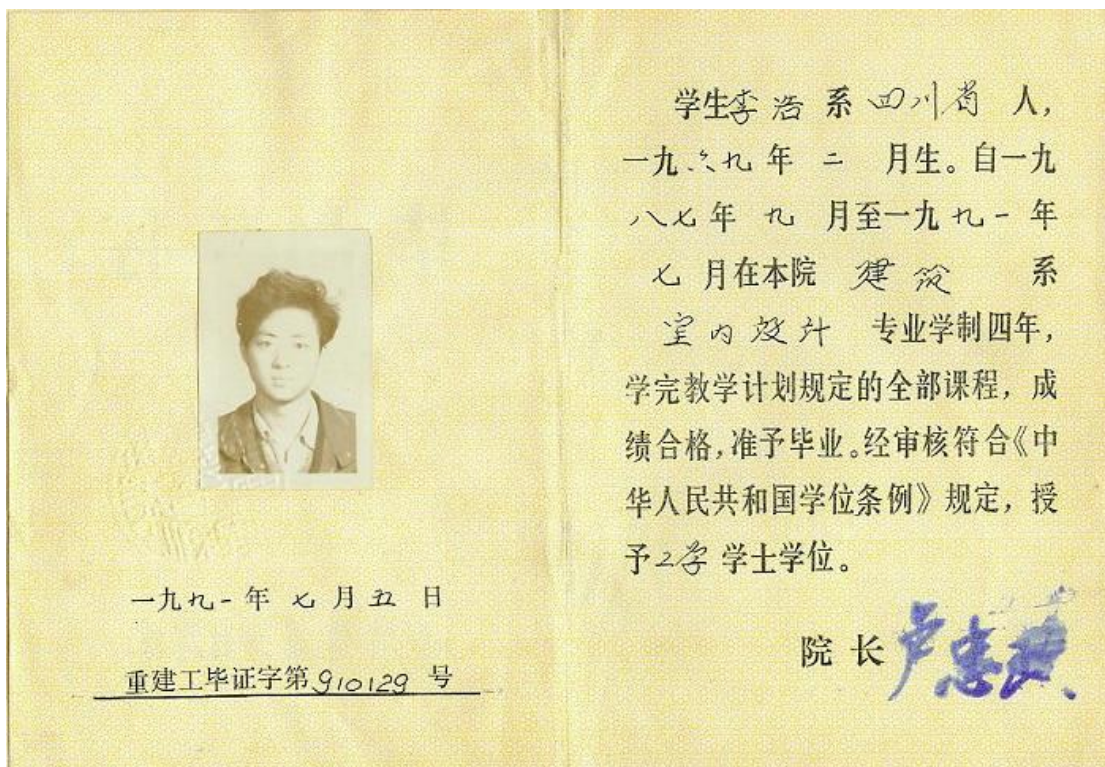 一九九一年七月五日
重建工毕证字第910129号
学生李浩系四川省人,
一九六九年二月生。自一九
八七年九月至一九九一年
七月在本院建筑系
室内设计专业学制四年,
学完教学计划规定的全部课程,成
绩合格,准予毕业。经审核符合《中
华人民共和国学位条例》规定,授
予工学学士学位。
院长卢忠